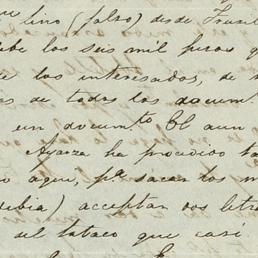 lino (falso) desde Truxil
ibe los seis mil pesos q
los interesados, de
as de todos los docum.
un docum.to El aun
Ayarza ha procedido ta
aqui, p.a sacar los m
ibia) acceptan dos letra
del tabaco que casi